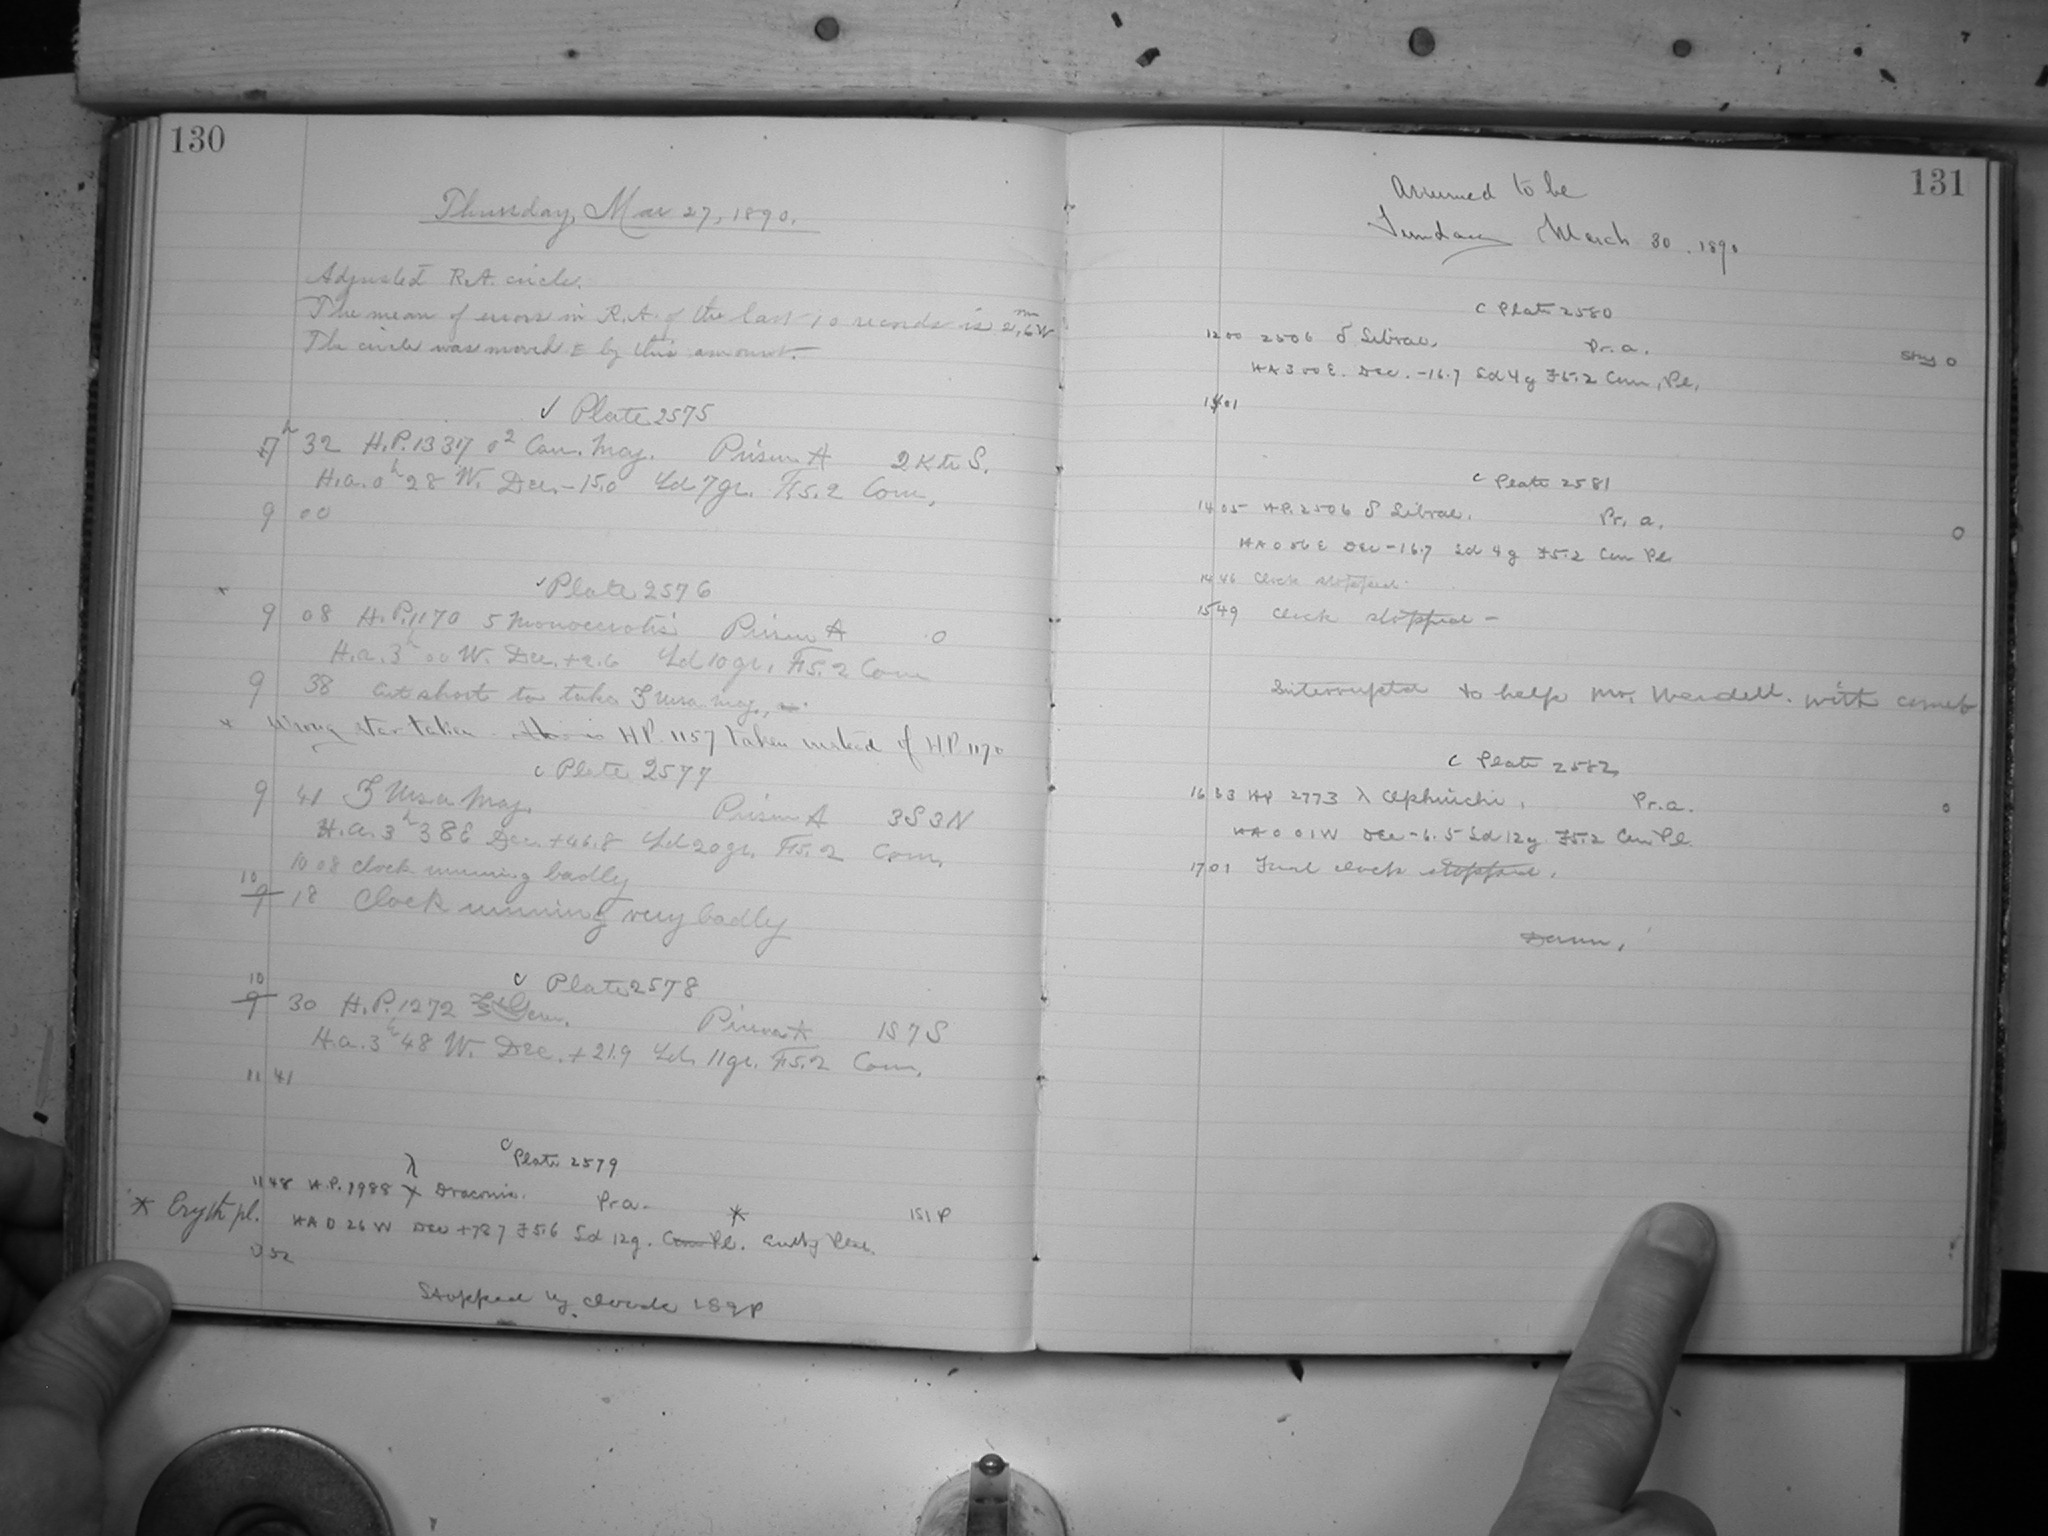 130
Thursday, Mar 27, 1890.
Adjusted R.A. circle.
The mean of errors in R.A. of the last 10 records is 2.6 m W
The circle was moved E by this amount.
✓ Plate 2575
7 h 32 H.P. 1337 o2 Can. Maj. Prism A 2 K to S.
H.a. 0 h 28 W. Dec. -15.0 Ld 7 gr. F5.2 Com.
9 00
✓ Plate 2576
9 08 H.P. 1170 5 Monocerotis Prism A 0
H.a. 3 h 00 W. Dec. +2.6 Ld 10 gr. F5.2 Com
9 38 Cut short to take ζ Ursa Maj.
* Wrong star taken HP. 1157 taken instead of H.P. 1170
c Plate 2577
9 41 ζ Ursa Maj. Prism A 3S 3N
H.a. 3 h 38 E Dec. +46.8 Ld 20 gr. F5.2 Com.
10 08 clock running badly
10 9 18 Clock running very badly
c Plate 2578
10 9 30 H.P. 1272 Gem. Prism A 1S 7S
H.a. 3 h 48 W. Dec. +21.9 Ld. 11 gr. F5.2 Com.
11 41
c Plate 2579
11 48 H.P. 1988 λ Draconis. Pr a. 1S 1P
* Eryth pl.
HA 0 26 W Dec +78 7 F5.6 Ld 12 g. Com Pl. *
52
Stopped by clouds
131
Assumed to be
Sunday March 30. 1890
c Plate 2580
12 00 2506 δ Librae. Pr. a. Sky 0
HA 3 00 E. Dec. -16.7 Ld 4 g F5.2 Com. Pl.
14 01
c Plate 2581
14 05 HP. 2506 δ Librae. Pr. a. 0
HA 0 56 E Dec -16.7 Ld 4 g F5.2 Com Pl
14 46 Clock stopped.
15 49 Clock stopped -
Interrupted to help Mr. Wendell. with comet
c Plate 2582
16 33 HP 2773 λ Ophiuchi. Pr. a. 0
HA 0 01 W Dec -6.5 Ld 12 g. F5.2 Com Pl.
17 01 Found clock stopped.
Dawn.